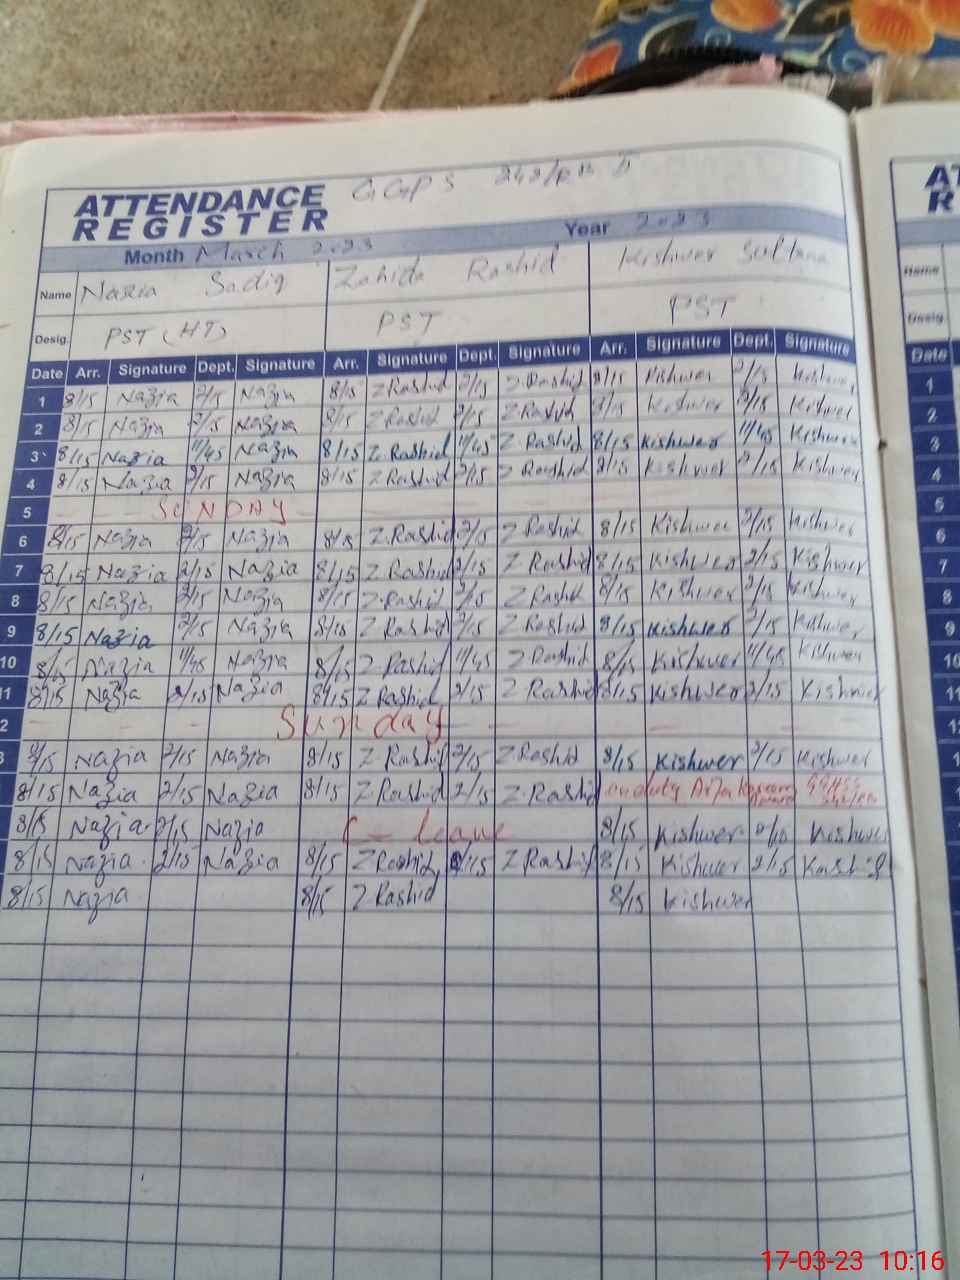 ATTENDANCE REGISTER GGPS 248/RB II
Month March 2023 Year 2023
Name Nazia Sadiq Zahida Rashid Kishwer Sultana
Desig. PST (HT) PST PST
Date Arr. Signature Dept. Signature Arr. Signature Dept. Signature Arr. Signature Dept. Signature
1 8/15 Nazia 2/15 Nazia 8/15 Z Rashid 2/15 Z.Rashid 8/15 Kishwer 2/15 Kishwer
2 8/15 Nazia 2/15 Nazia 8/15 Z Rashid 2/15 Z Rashid 8/15 Kishwer 2/15 Kishwer
3 8/15 Nazia 11/45 Nazia 8/15 Z.Rashid 11/45 Z Rashid 8/15 Kishwer 11/45 Kishwer
4 8/15 Nazia 2/15 Nazia 8/15 Z Rashid 2/15 Z Rashid 8/15 Kishwer 2/15 Kishwer
5 SUNDAY
6 8/15 Nazia 2/15 Nazia 8/15 Z.Rashid 2/15 Z Rashid 8/15 Kishwer 2/15 Kishwer
7 8/15 Nazia 2/15 Nazia 8/15 Z Rashid 2/15 Z Rashid 8/15 Kishwer 2/15 Kishwer
8 8/15 Nazia 2/15 Nazia 8/15 Z.Rashid 2/15 Z Rashid 8/15 Kishwer 2/15 Kishwer
9 8/15 Nazia 2/15 Nazia 8/15 Z Rashid 2/15 Z Rashid 8/15 Kishwer 2/15 Kishwer
10 8/15 Nazia 11/45 Nazia 8/15 Z Rashid 11/45 Z Rashid 8/15 Kishwer 11/45 Kishwer
11 8/15 Nazia 2/15 Nazia 8/15 Z Rashid 2/15 Z Rashid 8/15 Kishwer 2/15 Kishwer
2 Sunday
3 8/15 Nazia 2/15 Nazia 8/15 Z Rashid 2/15 Z Rashid 8/15 Kishwer 2/15 Kishwer
8/15 Nazia 2/15 Nazia 8/15 Z Rashid 2/15 Z.Rashid on duty
8/15 Nazia 2/15 Nazia C - leave 8/15 Kishwer 2/15 Kishwer
8/15 Nazia 2/15 Nazia 8/15 Z Rashid 2/15 Z Rashid 8/15 Kishwer 2/15
8/15 Nazia 8/15 Z Rashid 8/15 Kishwer
Name
Desig.
Date
1
2
3
4
5
6
7
8
9
10
11
17-03-23 10:16